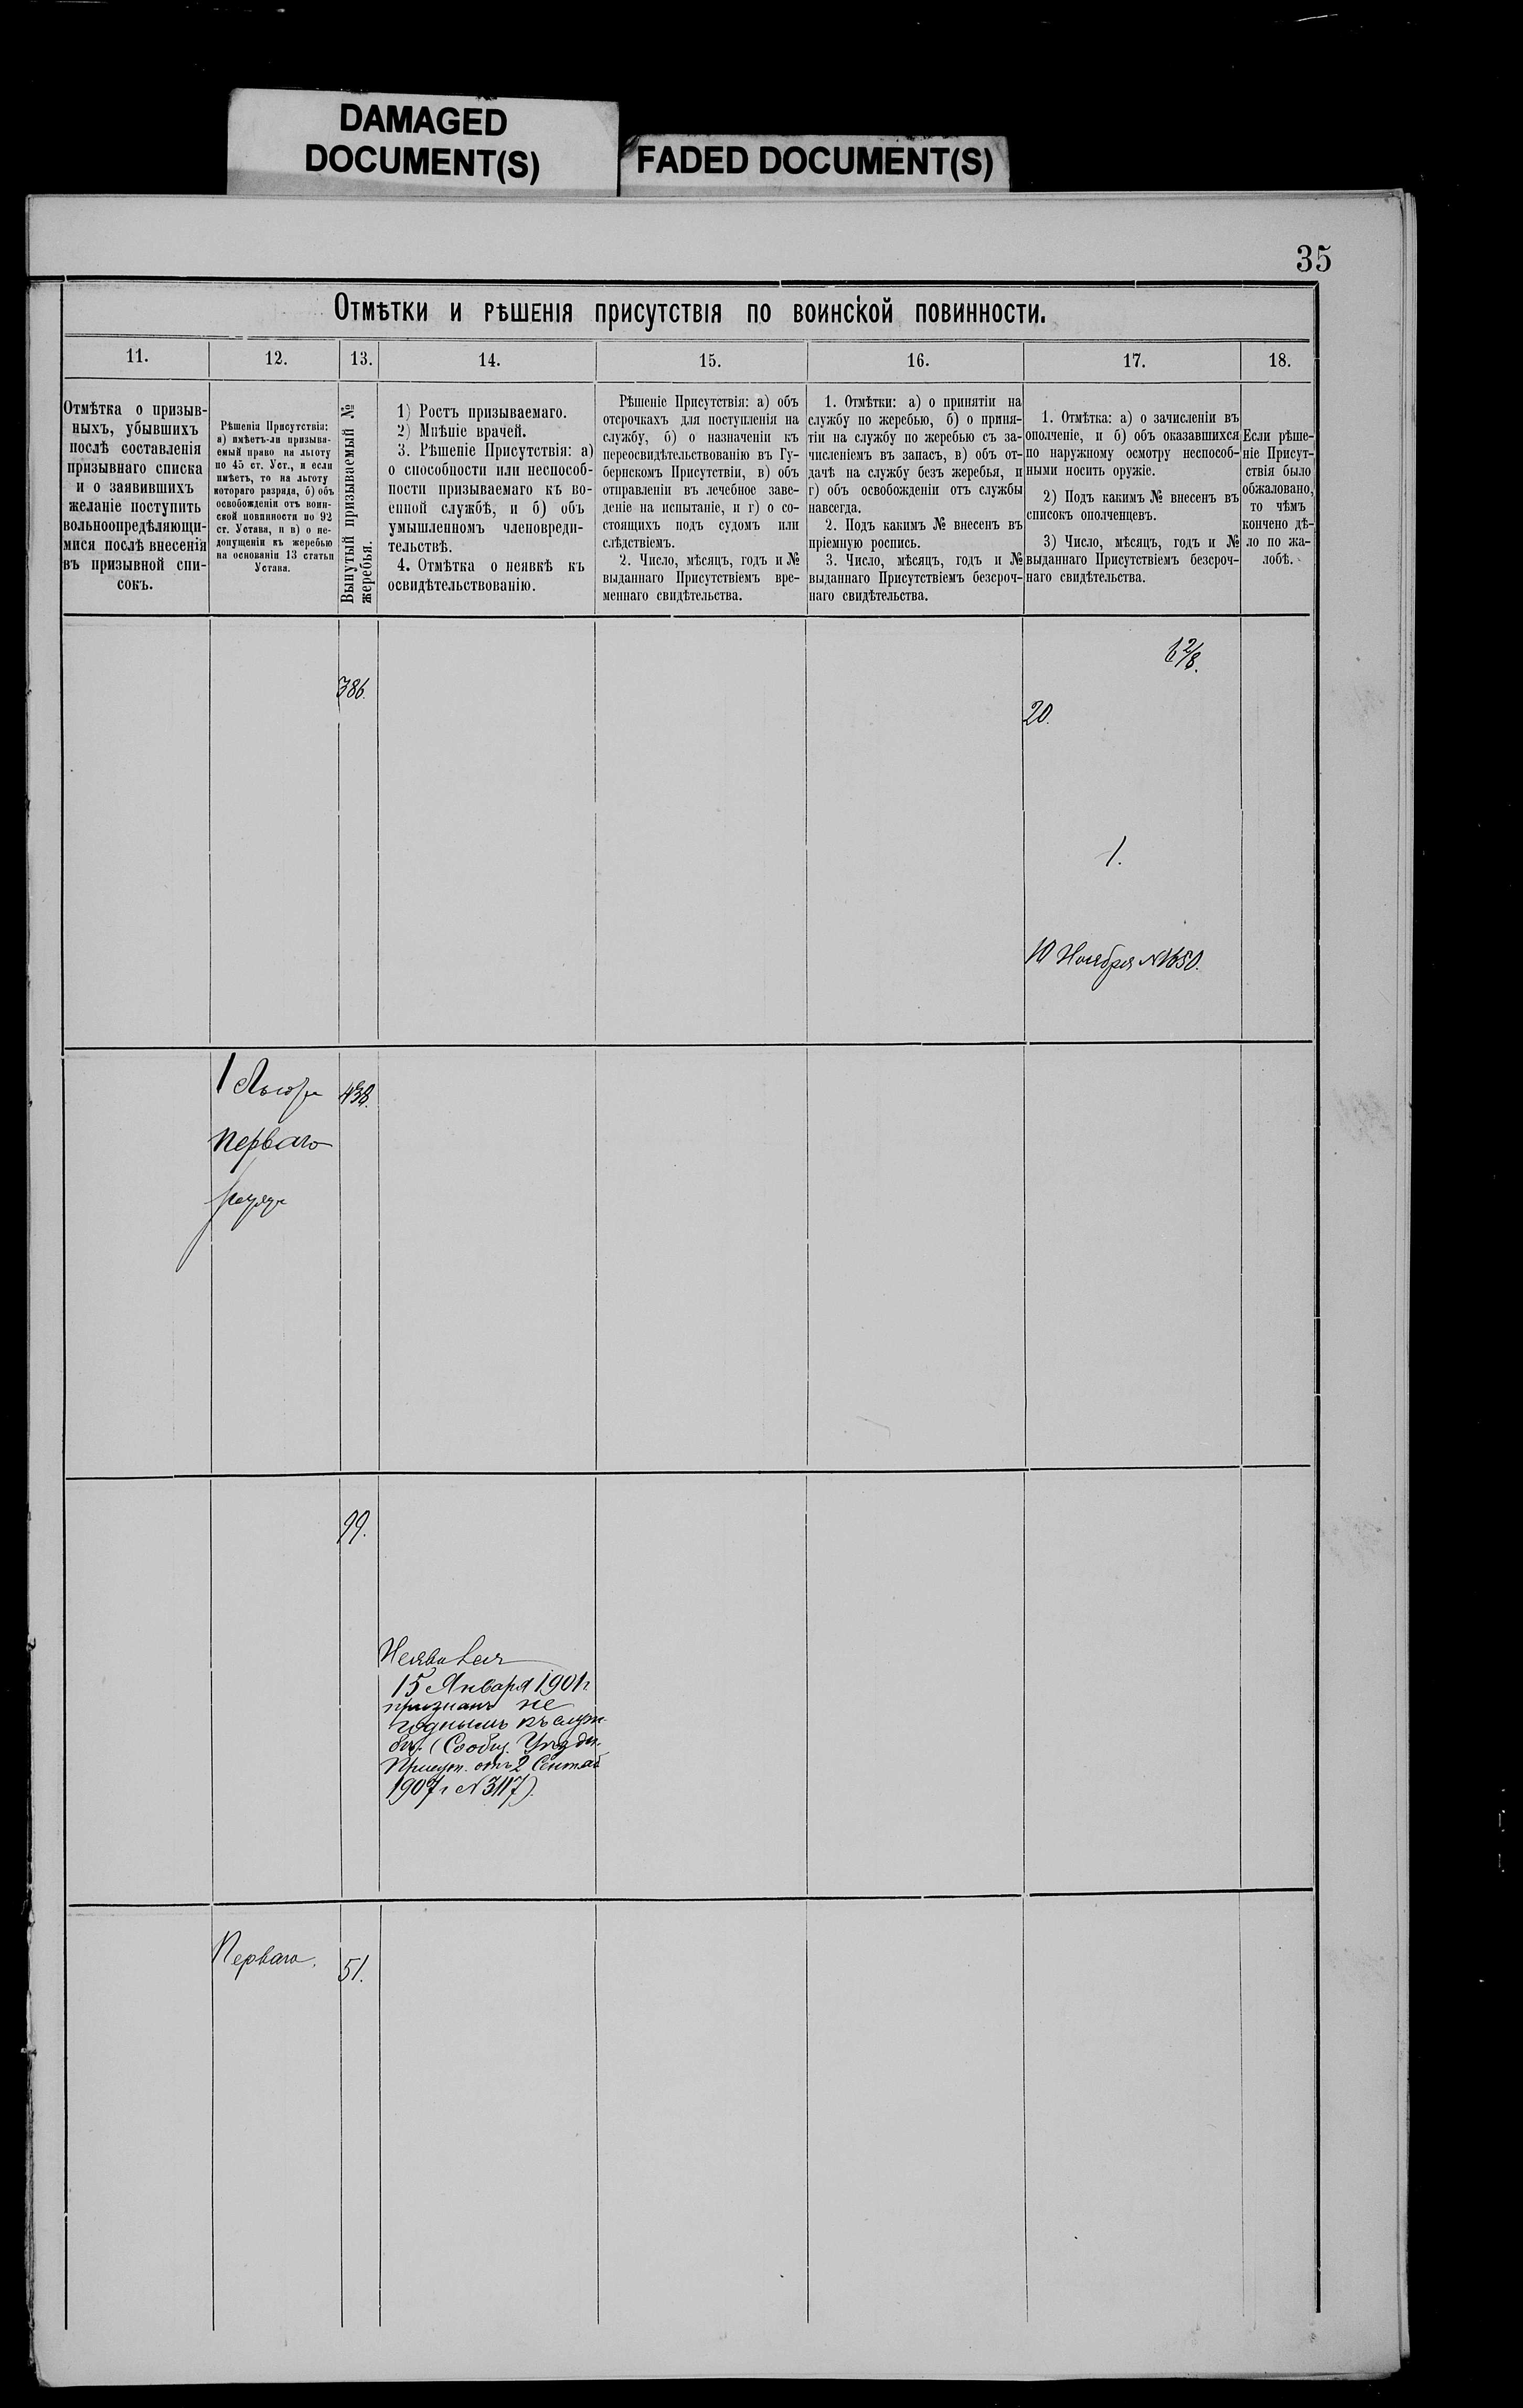 DAMAGED
DOCUMENT(S)
FADED DOCUMENT(S)
35
Отмѣтки и рѣшенія присутствія по воинской повинности.
11.
12.
13.
14.
15.
16.
17.
18.
Отмѣтка о призыв-
ныхъ, убывшихъ
послѣ составленія
призывнаго списка
и о заявившихъ
желаніе поступить
вольноопредѣляющи-
мися послѣ внесенія
въ призывной спи-
сокъ.
Рѣшенія Присутствія:
а) имѣетъ-ли призыва-
емый право на льготу
по 45 ст. Уст., и если
имѣетъ, то на льготу
котораго разряда, б) объ
освобожденіи отъ воин-
ской повинности по 92
ст. Устава, и в) о не-
допущеніи къ жеребью
на основаніи 13 статьи
Устава.
Вынутый призываемый №
жеребья.
1) Ростъ призываемаго.
2) Мнѣніе врачей.
3. Рѣшеніе Присутствія: а)
о способности или неспособ-
ности призываемаго къ во-
енной службѣ, и б) объ
умышленномъ членовреди-
тельствѣ.
4. Отмѣтка о неявкѣ къ
освидѣтельствованію.
Рѣшеніе Присутствія: а) объ
отсрочкахъ для поступленія на
службу, б) о назначеніи къ
переосвидѣтельствованію въ Гу-
бернскомъ Присутствіи, в) объ
отправленіи въ лечебное заве-
деніе на испытаніе, и г) о со-
стоящихъ подъ судомъ или
слѣдствіемъ.
2. Число, мѣсяцъ, годъ и №
выданнаго Присутствіемъ вре-
меннаго свидѣтельства.
1. Отмѣтки: а) о принятіи на
службу по жеребью, б) о приня-
тіи на службу по жеребью съ за-
численіемъ въ запасъ, в) объ от-
дачѣ на службу безъ жеребья, и
г) объ освобожденіи отъ службы
навсегда.
2. Подъ какимъ № внесенъ въ
пріемную роспись.
3. Число, мѣсяцъ, годъ и №
выданнаго Присутствіемъ безсроч-
наго свидѣтельства.
1. Отмѣтка: а) о зачисленіи въ
ополченіе, и б) объ оказавшихся
по наружному осмотру неспособ-
ными носить оружіе.
2) Подъ какимъ № внесенъ въ
списокъ ополченцевъ.
3) Число, мѣсяцъ, годъ и №
выданнаго Присутствіемъ безсроч-
наго свидѣтельства.
Если рѣше-
ніе Присут-
ствія было
обжаловано,
то чѣмъ
кончено дѣ-
ло по жа-
лобѣ.
6 2/8.
386.
20.
1.
10 Ноября №1650.
1
438.
Перваго
99.
Неявился
15 Января 1901 г
признанъ не
годнымъ къ служ-
бѣ. (Сообщ. Уѣздн.
Присут. отъ 2 Сентяб
1907 г №3117).
Перваго.
51.